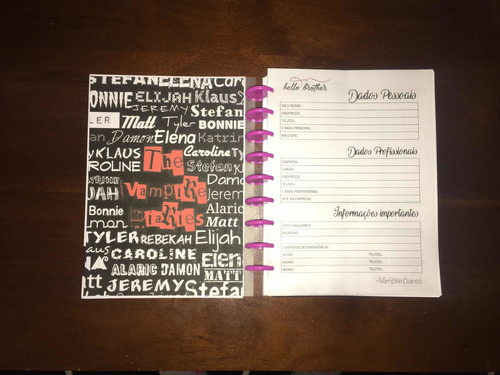 STEFAN ELENA Caro
BONNIE ELIJAH Klaus
JEREMY Stefan
LER Matt Tyler BONNIE
Damon Elena Katrin
KLAUS The Caroline
ROLINE Stefan
Vampire Damon
JAH Jeremy
Bonnie Diaries Alaric
amon Matt
TYLER REBEKAH Elijah
aus CAROLINE Elen
NA ALARIC DAMON MATT
att JEREMY Stefan
hello brother
Dados Pessoais
MEU NOME:
ENDEREÇO:
TEL/CEL:
E-MAIL PRINCIPAL:
MEU SITE:
Dados Profissionais
EMPRESA:
CARGO:
ENDEREÇO:
TEL/CEL:
E-MAIL PROFISSIONAL:
SITE DA EMPRESA:
Informações importantes
TIPO SANGUÍNEO:
ALERGIAS:
CONTATOS DE EMERGÊNCIA:
NOME: TEL/CEL:
NOME: TEL/CEL:
NOME: TEL/CEL:
Vampire Diaries